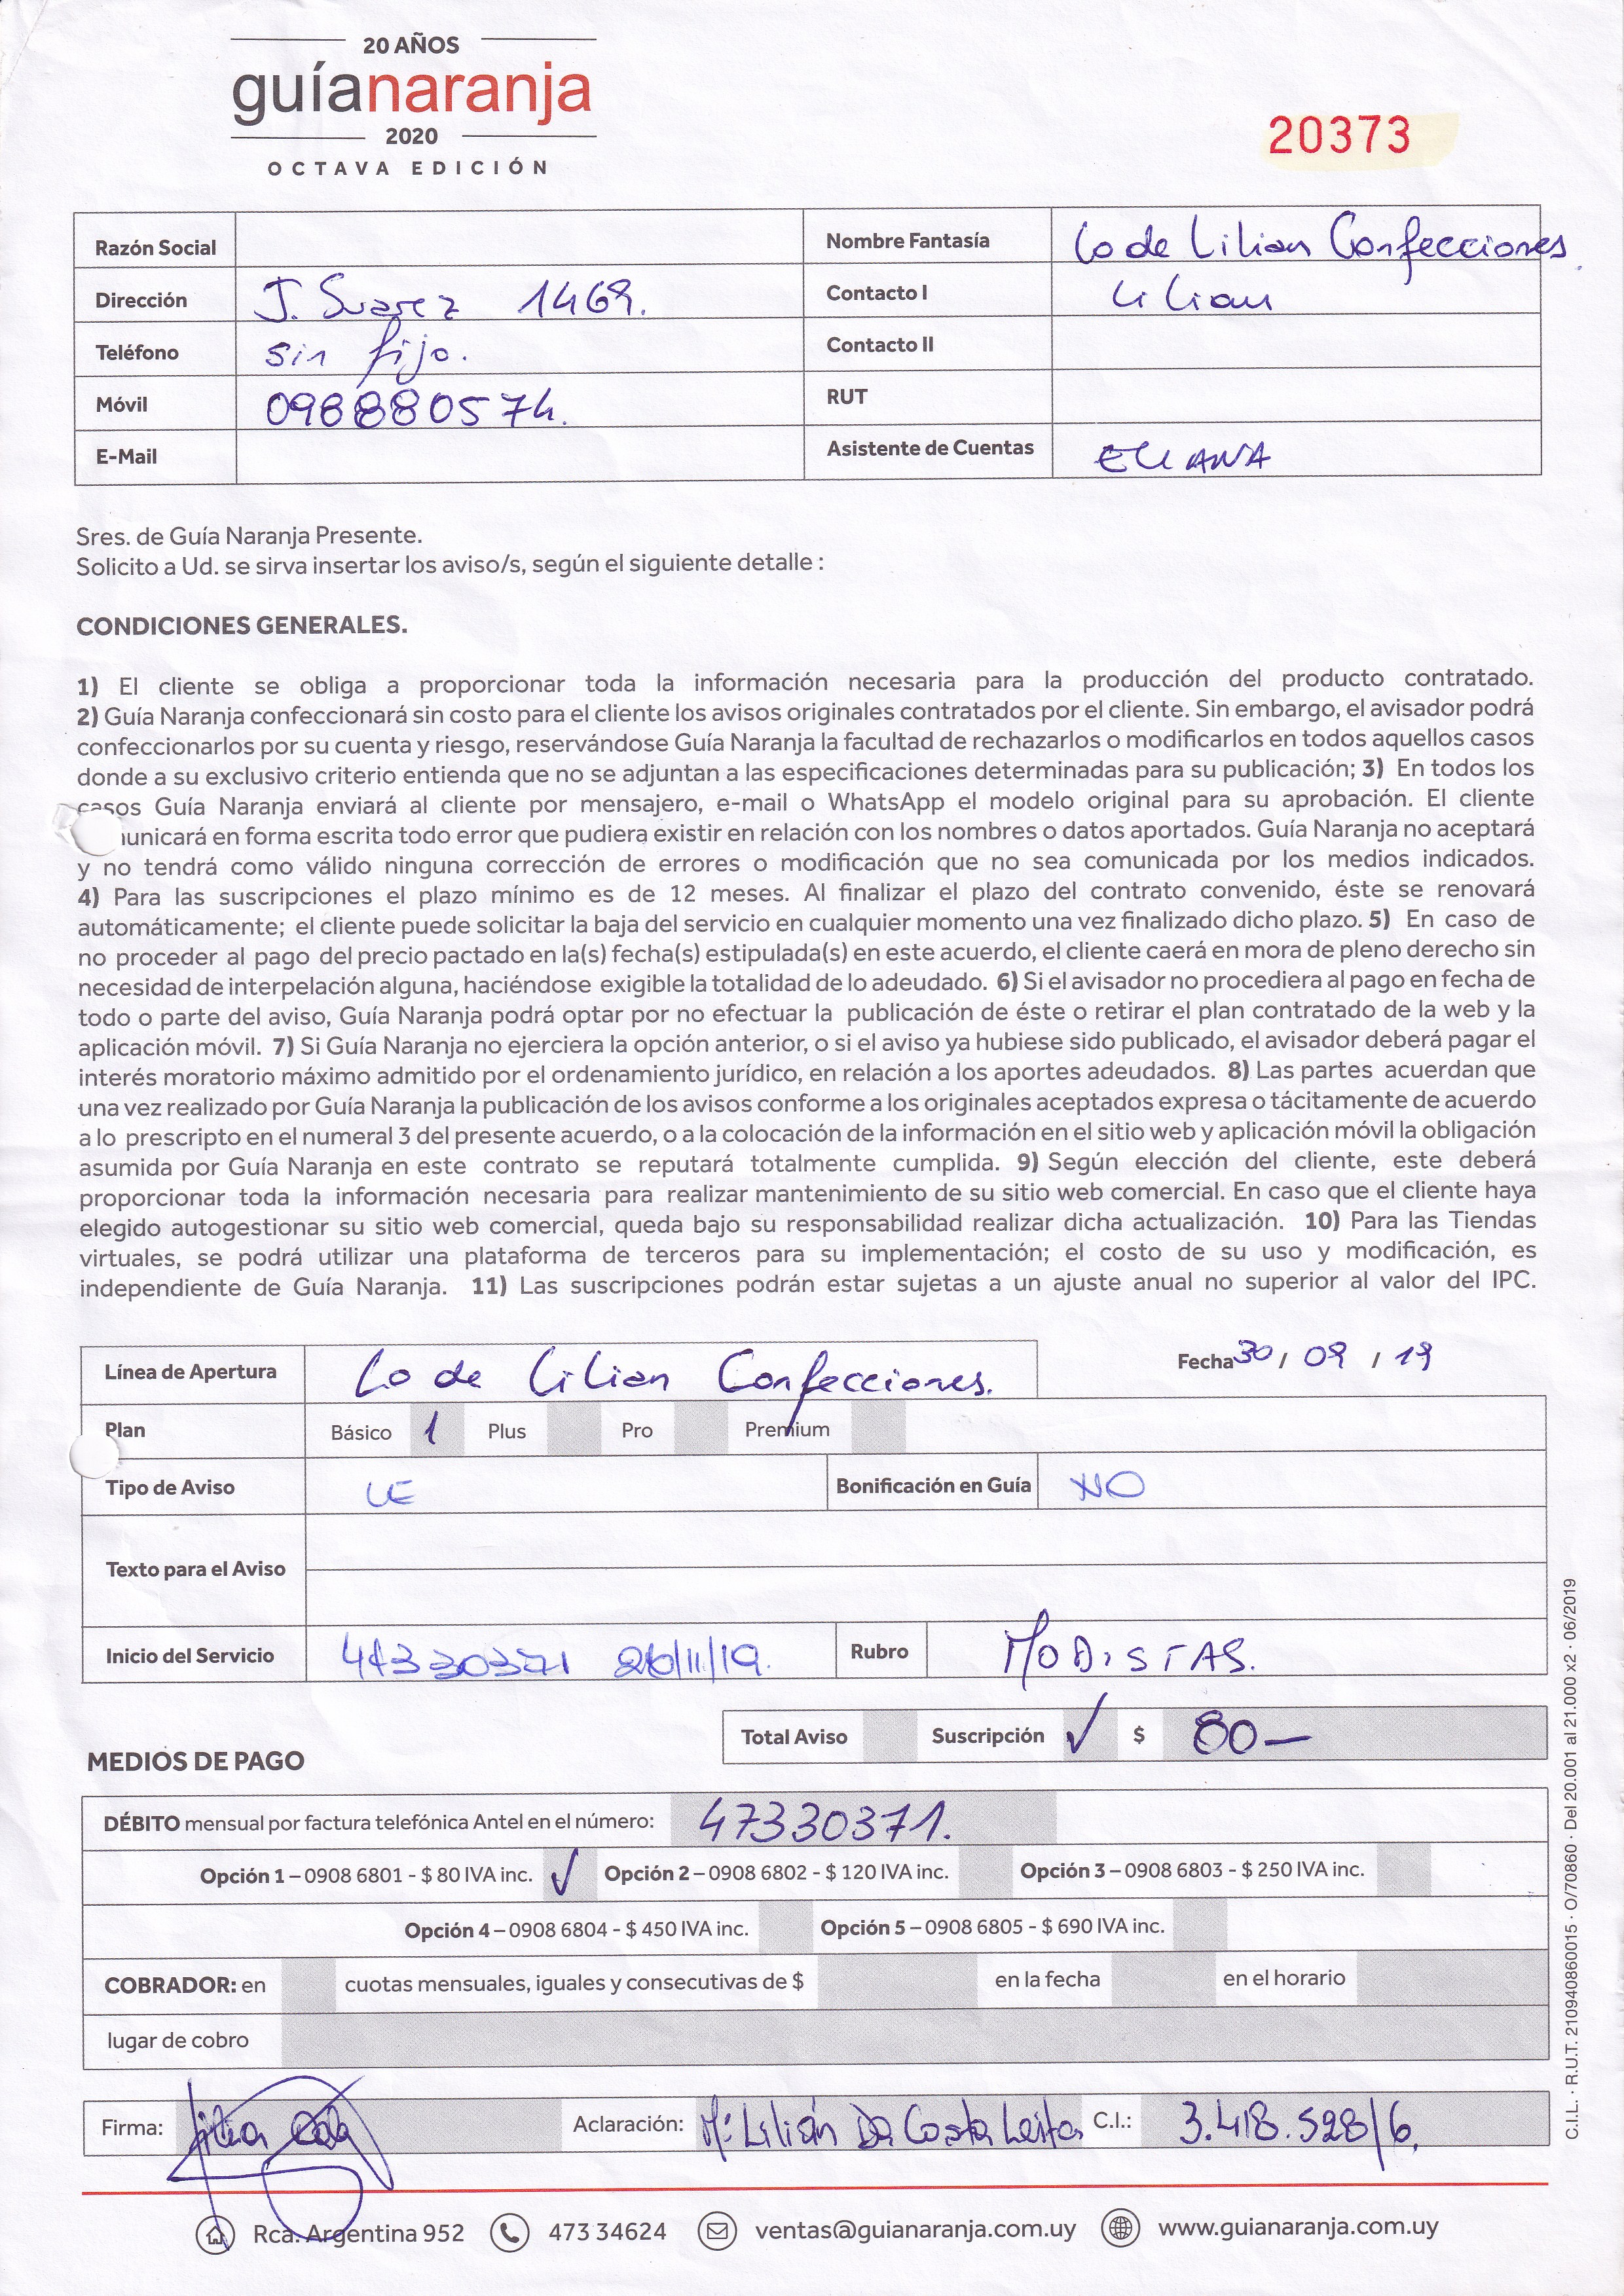 20 AÑOS
guíanaranja
2020
OCTAVA EDICIÓN
20373
Razón Social
Nombre Fantasía Lo de Lilian Confecciones.
Dirección J. Suarez 1469.
Contacto I Lilian
Teléfono sin fijo.
Contacto II
Móvil 098880574.
RUT
E-Mail
Asistente de Cuentas ELIANA
Sres. de Guía Naranja Presente.
Solicito a Ud. se sirva insertar los aviso/s, según el siguiente detalle :
CONDICIONES GENERALES.
1) El cliente se obliga a proporcionar toda la información necesaria para la producción del producto contratado.
2) Guía Naranja confeccionará sin costo para el cliente los avisos originales contratados por el cliente. Sin embargo, el avisador podrá
confeccionarlos por su cuenta y riesgo, reservándose Guía Naranja la facultad de rechazarlos o modificarlos en todos aquellos casos
donde a su exclusivo criterio entienda que no se adjuntan a las especificaciones determinadas para su publicación; 3) En todos los
casos Guía Naranja enviará al cliente por mensajero, e-mail o WhatsApp el modelo original para su aprobación. El cliente
unicará en forma escrita todo error que pudiera existir en relación con los nombres o datos aportados. Guía Naranja no aceptará
y no tendrá como válido ninguna corrección de errores o modificación que no sea comunicada por los medios indicados.
4) Para las suscripciones el plazo mínimo es de 12 meses. Al finalizar el plazo del contrato convenido, éste se renovará
automáticamente; el cliente puede solicitar la baja del servicio en cualquier momento una vez finalizado dicho plazo. 5) En caso de
no proceder al pago del precio pactado en la(s) fecha(s) estipulada(s) en este acuerdo, el cliente caerá en mora de pleno derecho sin
necesidad de interpelación alguna, haciéndose exigible la totalidad de lo adeudado. 6) Si el avisador no procediera al pago en fecha de
todo o parte del aviso, Guía Naranja podrá optar por no efectuar la publicación de éste o retirar el plan contratado de la web y la
aplicación móvil. 7) Si Guía Naranja no ejerciera la opción anterior, o si el aviso ya hubiese sido publicado, el avisador deberá pagar el
interés moratorio máximo admitido por el ordenamiento jurídico, en relación a los aportes adeudados. 8) Las partes acuerdan que
una vez realizado por Guía Naranja la publicación de los avisos conforme a los originales aceptados expresa o tácitamente de acuerdo
a lo prescripto en el numeral 3 del presente acuerdo, o a la colocación de la información en el sitio web y aplicación móvil la obligación
asumida por Guía Naranja en este contrato se reputará totalmente cumplida. 9) Según elección del cliente, este deberá
proporcionar toda la información necesaria para realizar mantenimiento de su sitio web comercial. En caso que el cliente haya
elegido autogestionar su sitio web comercial, queda bajo su responsabilidad realizar dicha actualización. 10) Para las Tiendas
virtuales, se podrá utilizar una plataforma de terceros para su implementación; el costo de su uso y modificación, es
independiente de Guía Naranja. 11) Las suscripciones podrán estar sujetas a un ajuste anual no superior al valor del IPC.
Línea de Apertura Lo de Lilian Confecciones.
Fecha 30 / 09 / 19
Plan Básico 1 Plus Pro Premium
Tipo de Aviso LE Bonificación en Guía NO
Texto para el Aviso
Inicio del Servicio 47330371 26/11/19. Rubro MODISTAS.
Total Aviso Suscripción ✓ $ 80—
MEDIOS DE PAGO
DÉBITO mensual por factura telefónica Antel en el número: 47330371.
Opción 1 – 0908 6801 - $ 80 IVA inc. ✓ Opción 2 – 0908 6802 - $ 120 IVA inc. Opción 3 – 0908 6803 - $ 250 IVA inc.
Opción 4 – 0908 6804 - $ 450 IVA inc. Opción 5 – 0908 6805 - $ 690 IVA inc.
COBRADOR: en cuotas mensuales, iguales y consecutivas de $ en la fecha en el horario
lugar de cobro
Firma: Aclaración: Mª Lilián Da Costa Leita C.I.: 3.418.528/6.
Rca. Argentina 952 473 34624 ventas@guianaranja.com.uy www.guianaranja.com.uy
C.I.L. · R.U.T. 210940860015 · O/70860 · Del 20.001 al 21.000 x2 · 06/2019